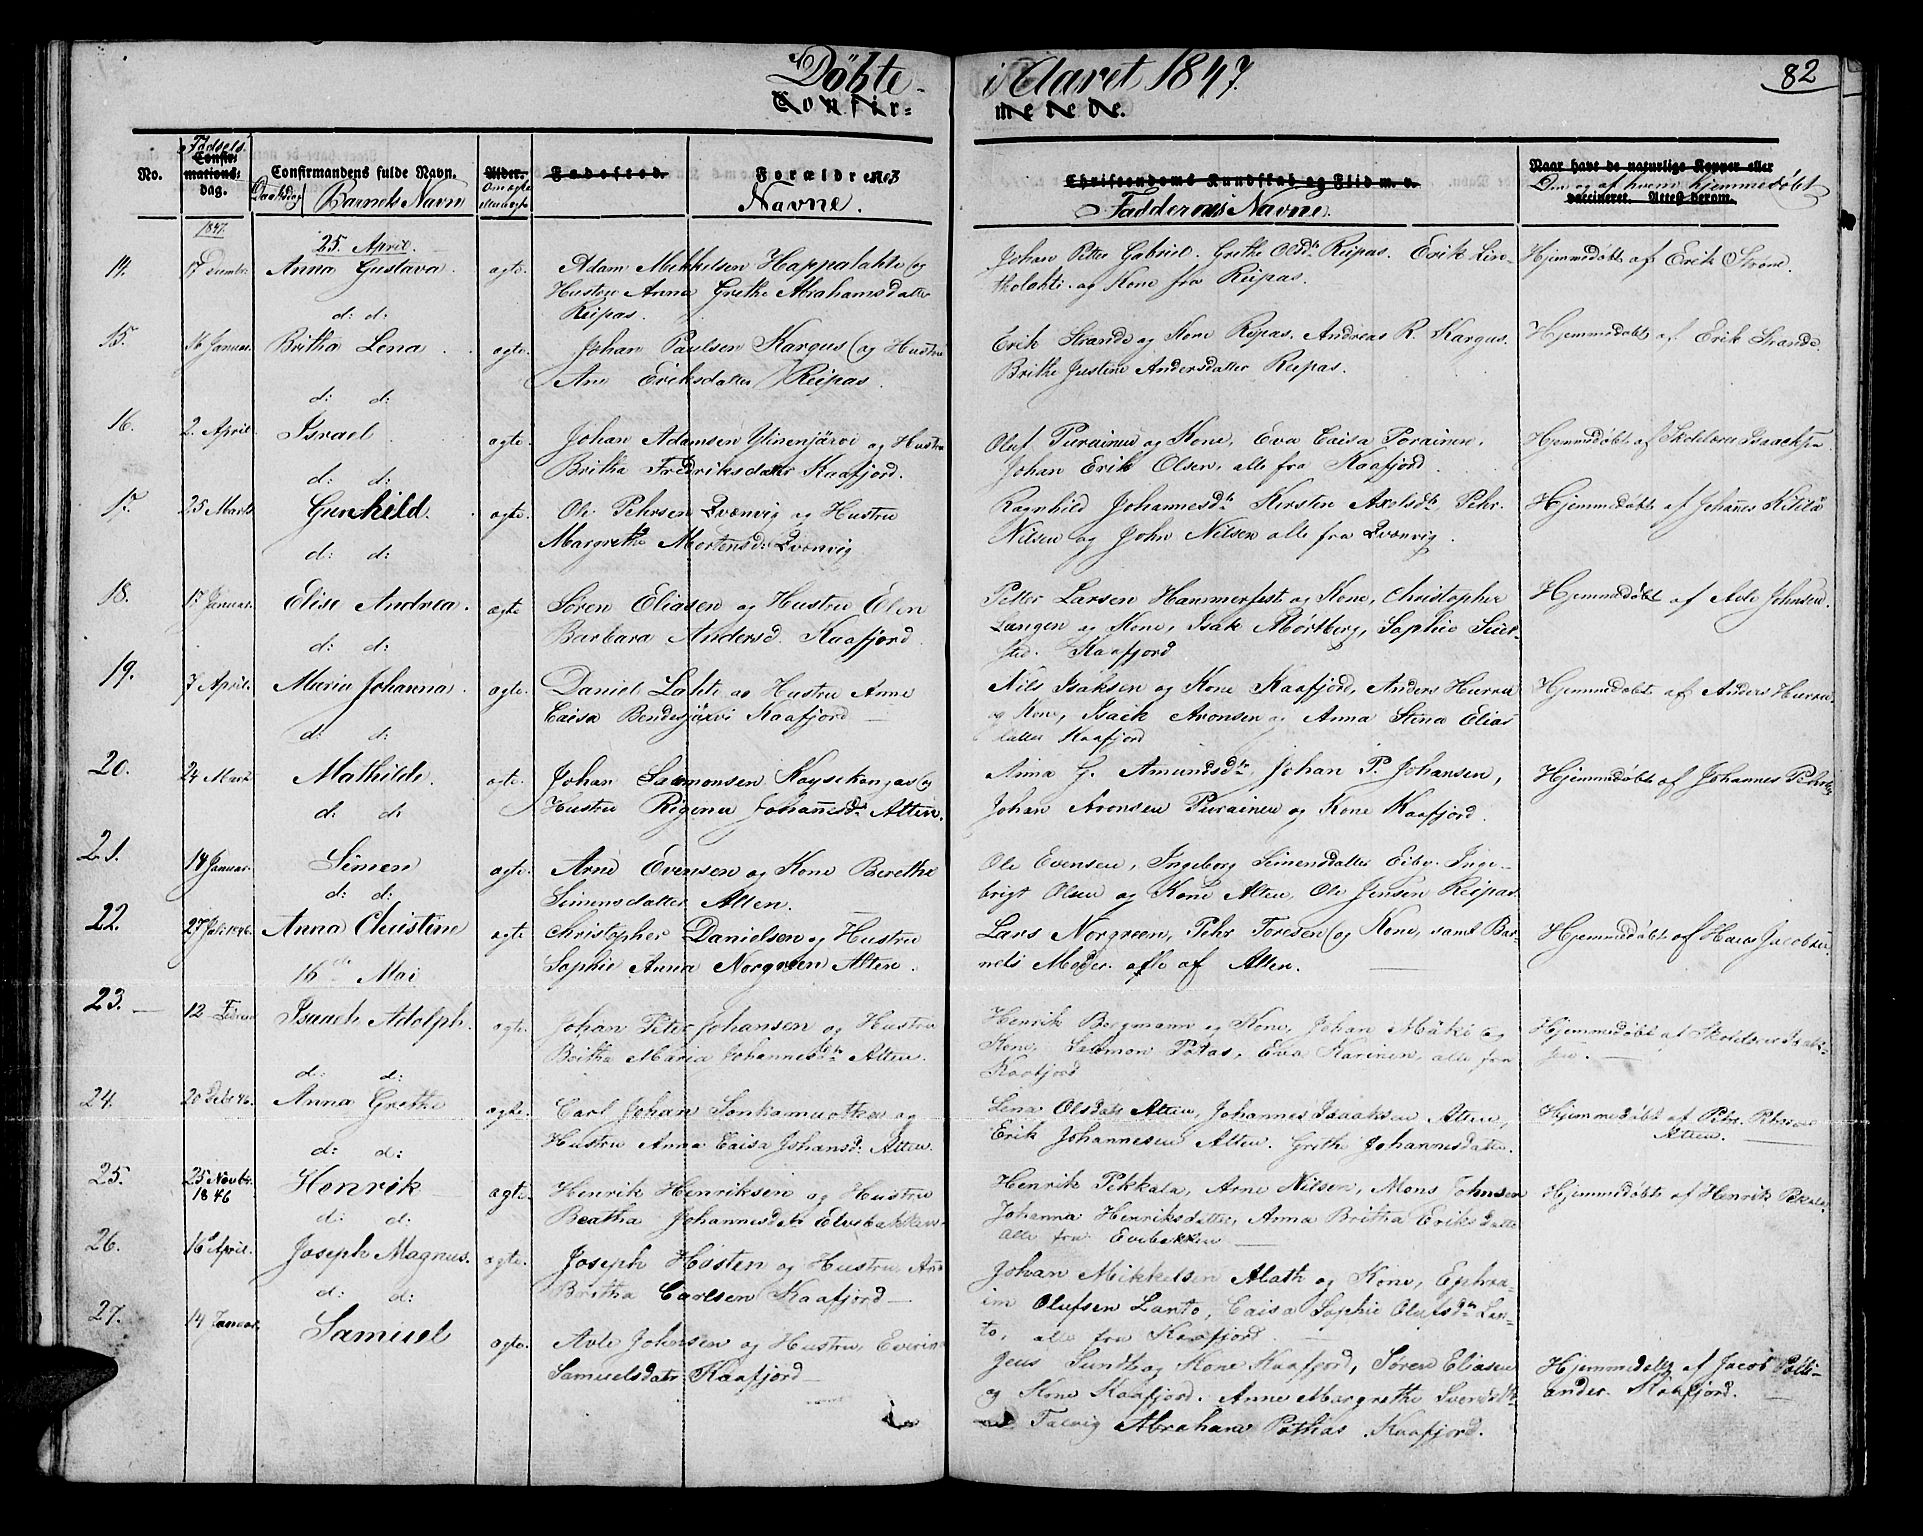 Döbte i Aaret 1847.
82
Confir= merede.
No.
Födsels
Confir=
mations=
dag.
Confirmandens fulde Navn.
Daabsdag Barnets Navn
Alder.
Om ægte
eller uægte
Fødested.
Forældrenes
Navne.
Christendoms Kundskab og Flid m. v.
Faddernes Navne.
Naar havt de naturlige Kopper eller
Om og af hvem hjemmedøbt
vaccineret. Attest derom.
1847.
25. April.
14. 17 Anna Gustava. ægte. Adam Mikkelsen Happalahti og
Hustru Anna Grethe Abrahamsdatter
Reipas.
Johan Petter Gabriel. Grethe Olsdtr Reipas. Erik
og Kone fra Reipas.
Hjemmedøbt af Erik Strøm.
d: d:
15. 16 Januar. Britha Lena ægte. Johan Paulsen Kargus og Hustru
Ane Eriksdatter Reipas.
Erik Strande og Kone Reipas. Andreas R. Kargus.
Brithe Justine Andersdatter Reipas.
Hjemmedøbt af Erik Strande.
d: d:
16. 2. April Israel ægte. Johan Adamsen Ylinenjärvi og Hustru
Britha Fredriksdatter Kaafjord.
Oluf Purainen og Kone, Eva Caisa Porainen,
Johan Erik Olsen, alle fra Kaafjord.
Hjemmedøbt af Skolelærer Isaacksen
d: d:
17. 25 Marts Gunhild. ægte. Ole Pehrsen Qvænvig og Hustru
Margrethe Mortensd: Qvænvig
Ragnhild Johannesdtr Kirsten Axelsdtr Pehr
Nilsen og John Nilsen alle fra Qvænvig.
Hjemmedøbt af Johannes Kitilä
d: d:
18. 17 Januar. Elise Andrea. ægte Søren Eliasen og Hustru Elen
Barbara Andersd. Kaafjord.
Petter Larsen Hammerfest og Kone, Christopher
Langen og Kone, Isak Mortberg, Sophie Sier-
sted. Kaafjord
Hjemmedøbt af Avle Johnsen.
d: d:
19. 7 April. Maria Johanna. ægte. Daniel Lahti og Hustru Anne
Caisa Bendesjärvi Kaafjord
Nils Isaksen og Kone Kaafjord, Anders Hurru
og Kone, Isack Aronsen og Anna Stina Elias
datter Kaafjord
Hjemmedøbt af Anders Hurru.
d: d:
20. 24 Marts Mathilde. ægte. Johan Salamonsen Koysekangas og
Hustru Rigena Johannsd. Alten.
Anna G. Amundsdtr, Johan P. Johansen,
Johan Aronsen Purainen og Kone Kaafjord.
Hjemmedøbt af Johannes
d: d:
21. 14 Januar. Simen ægte. Arne Evensen og Kone Berethe
Simensdatter Alten.
Ole Evensen, Ingeborg Simensdatter Eibv. Inge-
brigt Olsen og Kone Alten, Ole Jensen Reipas.
d: d:
22. 27 Juli 1846. Anna Christine ægte Christopher Danielsen og Hustru
Sophie Anna Norgreen Alten.
Lars Norgreen, Pehr Toresen og Kone, samt Bar-
nets Moder. alle af Alten.
Hjemmedøbt af Hans Jacobsen
16de Mai
23. 12 Februar Isaack Adolph. ægte. Johan Peter Johansen og Hustru
Britha Maria Johannesdtr Alten.
Henrik Borgmann og Kone, Johan Mäki og
Kone, Salomon Potas, Eva Karinen, alle fra
Kaafjord
Hjemmedøbt af Skolelærer Isaak-
sen.
d: d:
24. 20 Anna Grethe ægte Carl Johan Sonkamuotka og
Hustru Anna Caisa Johansd: Alten.
Lena Olsdatr Alten, Johannes Isaaksen Alten,
Erik Johannesen Alten. Grethe Johannisdatter.
Hjemmedøbt af Petr.
Alten.
d: d:
25. 25 Novbr.
1846 Henrik ægte. Henrik Henriksen og Hustru
Beatha Johannesdatr Elvebakken
Henrik Pekkala, Arne Nilsen, Mons Johnsen
Johanna Henriksdatter, Anna Britha Eriksdatter
alle fra Evebakken
Hjemmedøbt af Henrik Pekala.
d: d:
26. 16 April. Joseph Magnus. ægte. Joseph Høsten og Hustru
Britha Carlsen Kaafjord
Johan Mikkelsen Alath og Kone, Ephra-
im Olufsen Lanto, Caisa Sophie Olufsdtr Lan-
to, alle fra Kaafjord.
d: d:
27. 14 Januar. Samuel ægte. Avle Johnsen og Hustru,
Samuelsdatr Kaafjord
Jens Sundt og Kone Kaafjord, Søren Eliasen
og Kone Kaafjord. Anne Margrethe
Talvig Abraham Pothas. Kaafjord.
Hjemmedøbt af Jacob
Kaafjord.